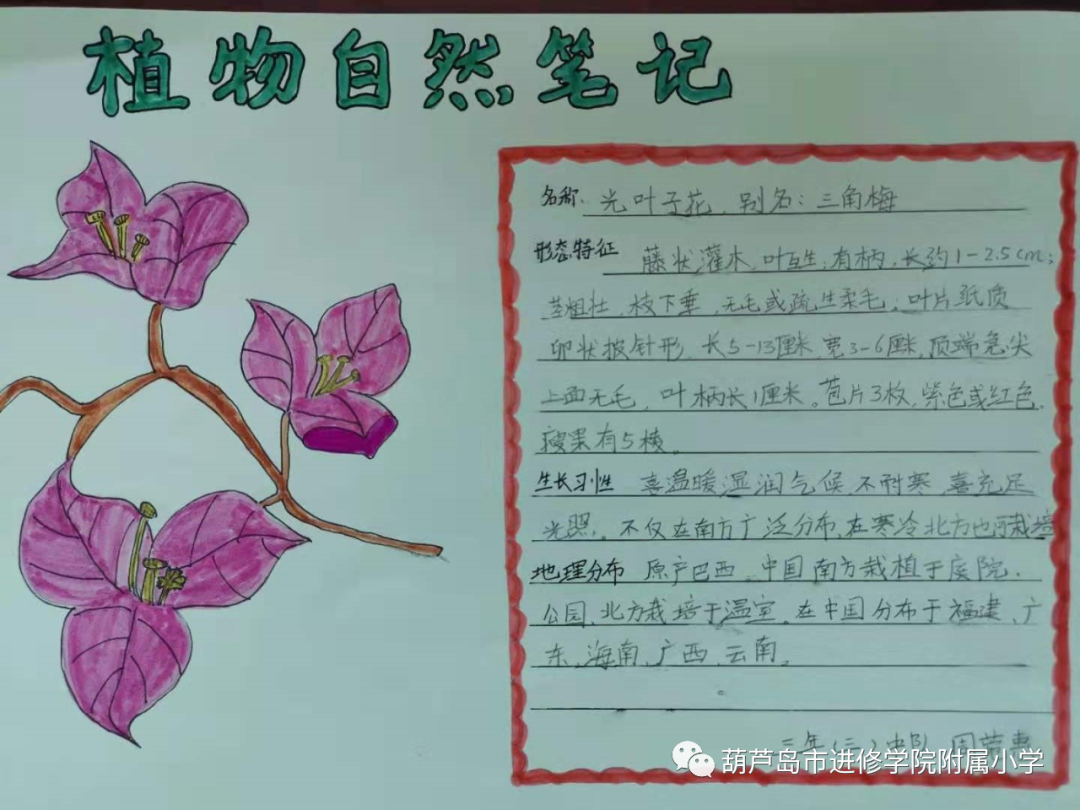 植物自然笔记
名称 光叶子花，别名：三角梅
形态特征 藤状灌木，叶互生，有柄，长约1-2.5cm；
茎粗壮，枝下垂，无毛或疏生柔毛；叶片纸质
卵状披针形，长5-13厘米，宽3-6厘米，顶端急尖
上面无毛，叶柄长1厘米。苞片3枚，紫色或红色，
瘦果有5棱。
生长习性 喜温暖湿润气候，不耐寒，喜充足
光照。不仅在南方广泛分布，在寒冷北方也可栽培
地理分布 原产巴西。中国南方栽植于庭院、
公园，北方栽培于温室。在中国分布于福建、广
东、海南、广西、云南。
三年(二)中队
葫芦岛市进修学院附属小学